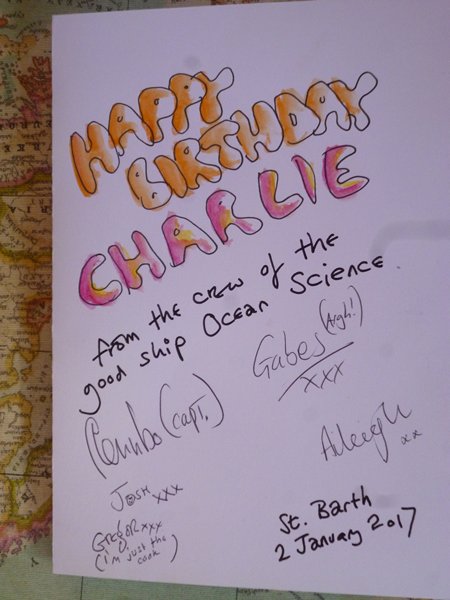 HAPPY
BIRTHDAY
CHARLIE
from the crew of the
good ship Ocean Science
(capt.)
Gabes (Argh!)
xxx
Aileigh
xx
Josh xxx
GREGOR xxx
(I'm just the
cook)
St. Barth
2 January 2017